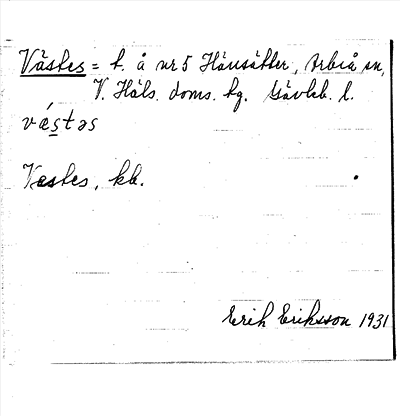 Västes = t. å nr 5 Hänsätter, Arbrå sn,
V. Häls. doms. hg. Gävleb. l.
vǽs̱təs
Vestes, kk.
Erik Eriksson 1931